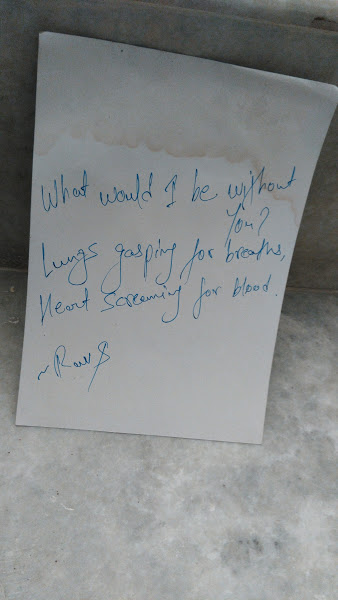 What would I be without
You?
Lungs gasping for breaths,
Heart screaming for blood.